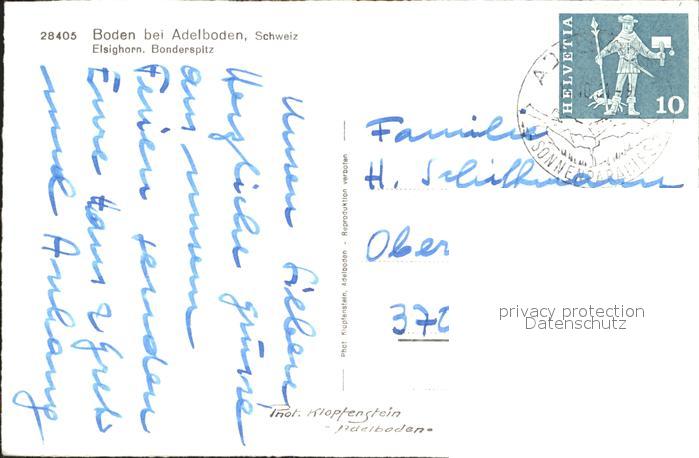 28405 Boden bei Adelboden, Schweiz
Elsighorn. Bonderspitz
HELVETIA
10
SONNENPARADIES
Unsern lieben
Herzliche Grüsse
aus unsern
Ferien senden
Eure Hans & Greti
und Anhang
Phot. Klopfenstein, Adelboden - Reproduktion verboten
Familie
H.
Ober
372
privacy protection
Datenschutz
Phot. Klopfenstein
- Adelboden -